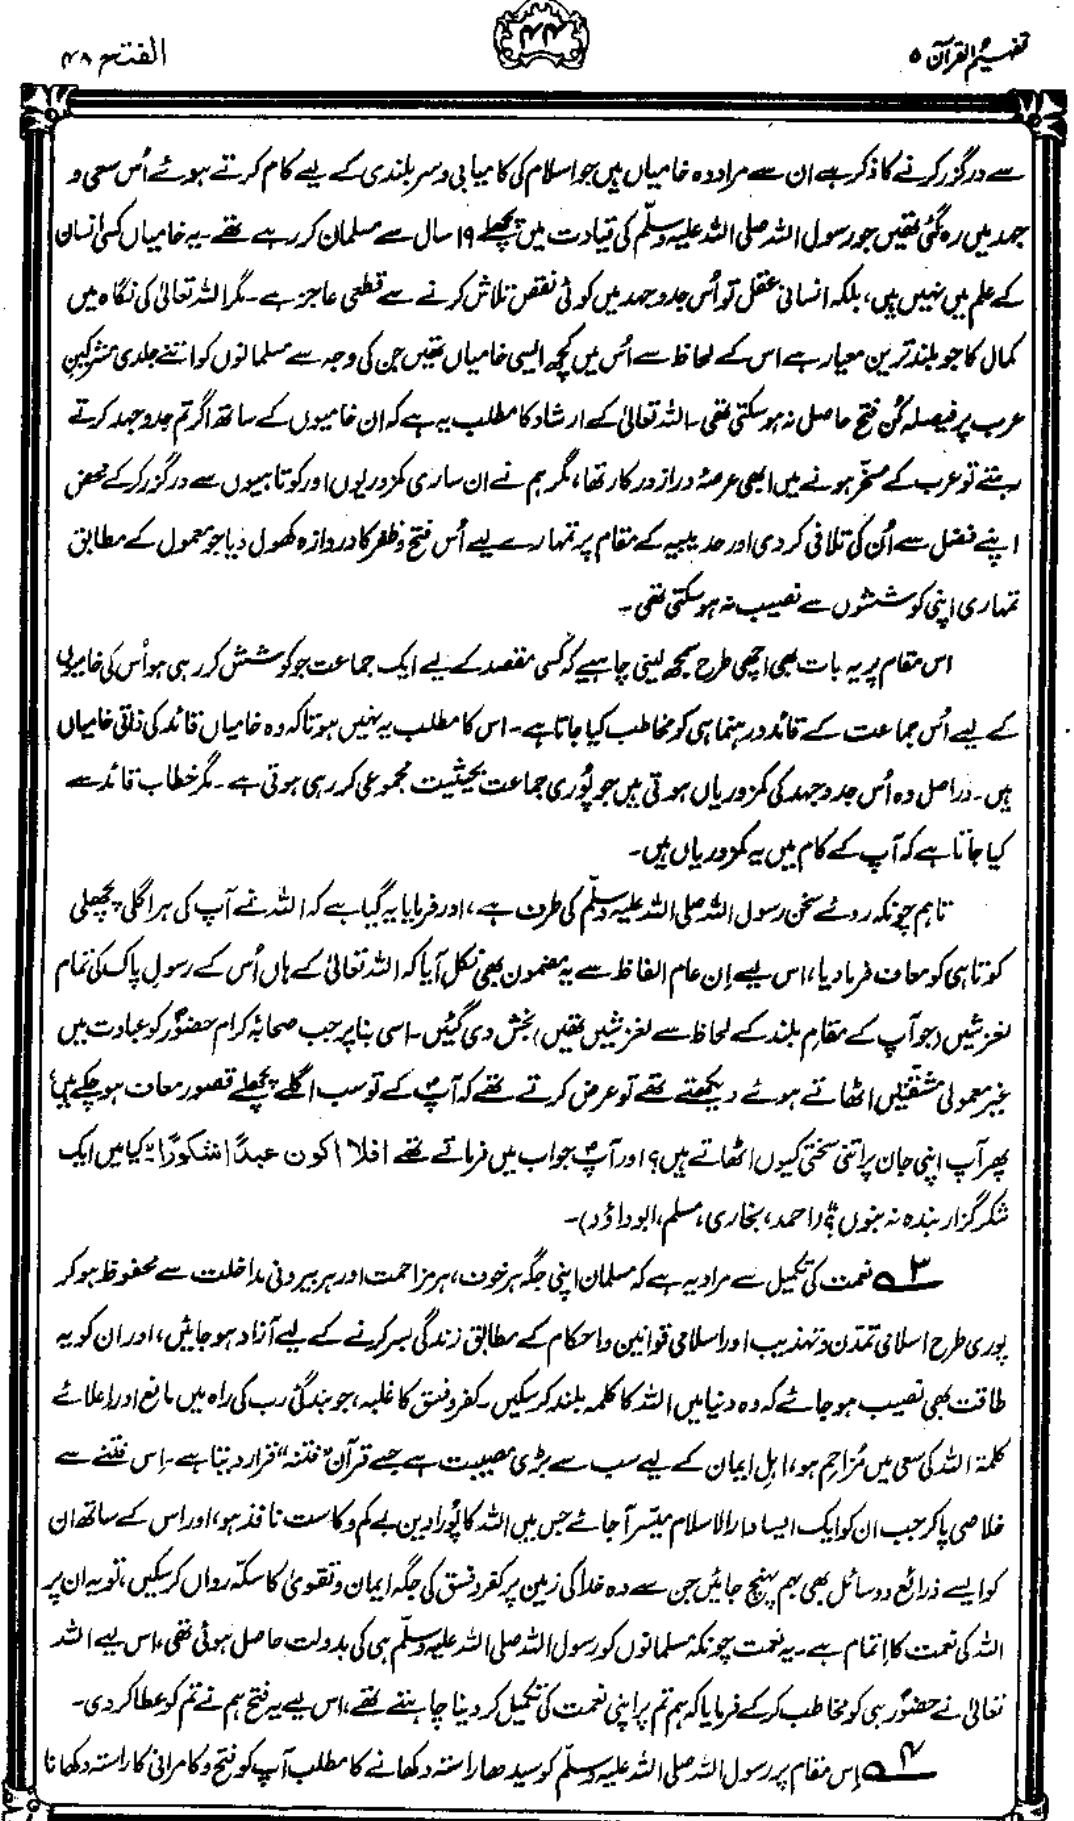 تفہیم القرآن ۵
۴۴
الفتح ۴۸
سے درگزر کرنے کا ذکر ہے ان سے مراد وہ خامیاں ہیں جو اسلام کی کامیابی و سربلندی کے لیے کام کرتے ہوئے اُس سعی و
جہد میں رہ گئی تھیں جو رسول اللہ صلی اللہ علیہ وسلّم کی قیادت میں پچھلے ۱۹ سال سے مسلمان کر رہے تھے۔ یہ خامیاں کسی انسان
کے علم میں نہیں ہیں، بلکہ انسانی عقل تو اُس جدوجہد میں کوئی نقص تلاش کرنے سے قطعی عاجز ہے۔ مگر اللہ تعالیٰ کی نگاہ میں
کمال کا جو بلند ترین معیار ہے اس کے لحاظ سے اُس میں کچھ ایسی خامیاں تھیں جن کی وجہ سے مسلمانوں کو اتنے جلدی مشرکینِ
عرب پر فیصلہ کُن فتح حاصل نہ ہو سکتی تھی۔ اللہ تعالیٰ کے ارشاد کا مطلب یہ ہے کہ ان خامیوں کے ساتھ اگر تم جدوجہد کرتے
رہتے تو عرب کے مسخّر ہونے میں ابھی عرصۂ دراز درکار تھا، مگر ہم نے ان ساری کمزوریوں اور کوتاہیوں سے درگزر کر کے محض
اپنے فضل سے اُن کی تلافی کر دی اور حدیبیہ کے مقام پر تمہارے لیے اُس فتح و ظفر کا دروازہ کھول دیا جو معمول کے مطابق
تمہاری اپنی کوششوں سے نصیب نہ ہو سکتی تھی۔
اس مقام پر یہ بات بھی اچھی طرح سمجھ لینی چاہیے کہ کسی مقصد کے لیے ایک جماعت جو کوشش کر رہی ہو اُس کی خامیوں
کے لیے اُس جماعت کے قائد و رہنما ہی کو مخاطب کیا جاتا ہے۔ اس کا مطلب یہ نہیں ہوتا کہ وہ خامیاں قائد کی ذاتی خامیاں
ہیں۔ دراصل وہ اُس جدوجہد کی کمزوریاں ہوتی ہیں جو پُوری جماعت بحیثیت مجموعی کر رہی ہوتی ہے۔ مگر خطاب قائد سے
کیا جاتا ہے کہ آپ کے کام میں یہ کمزوریاں ہیں۔
تاہم چونکہ روئے سخن رسول اللہ صلی اللہ علیہ وسلّم کی طرف ہے، اور فرمایا یہ گیا ہے کہ اللہ نے آپ کی ہر اگلی پچھلی
کوتاہی کو معاف فرما دیا، اس لیے اِن عام الفاظ سے یہ مضمون بھی نکل آیا کہ اللہ تعالیٰ کے ہاں اُس کے رسولِ پاک کی تمام
لغزشیں (جو آپ کے مقامِ بلند کے لحاظ سے لغزشیں تھیں) بخش دی گئیں۔ اسی بنا پر جب صحابۂ کرام حضورؐ کو عبادت میں
غیر معمولی مشقتیں اٹھاتے ہوئے دیکھتے تھے تو عرض کرتے تھے کہ آپؐ کے تو سب اگلے پچھلے قصور معاف ہو چکے ہیں،
پھر آپ اپنی جان پر اتنی سختی کیوں اٹھاتے ہیں؟ اور آپؐ جواب میں فرماتے تھے افلا اکون عبدًا شکورًا "کیا میں ایک
شکر گزار بندہ نہ بنوں؟" (احمد، بخاری، مسلم، ابوداؤد)۔
۳ نعمت کی تکمیل سے مراد یہ ہے کہ مسلمان اپنی جگہ ہر خوف، ہر مزاحمت اور ہر بیرونی مداخلت سے محفوظ ہو کر
پوری طرح اسلامی تمدّن و تہذیب اور اسلامی قوانین و احکام کے مطابق زندگی بسر کرنے کے لیے آزاد ہو جائیں، اور ان کو یہ
طاقت بھی نصیب ہو جائے کہ وہ دنیا میں اللہ کا کلمہ بلند کر سکیں۔ کفر و فسق کا غلبہ، جو بندگئ رب کی راہ میں مانع اور اعلائے
کلمۃ اللہ کی سعی میں مُزاحِم ہو، اہلِ ایمان کے لیے سب سے بڑی مصیبت ہے جسے قرآن "فتنہ" قرار دیتا ہے۔ اِس فتنے سے
خلاصی پا کر جب ان کو ایک ایسا دارالاسلام میسّر آ جائے جس میں اللہ کا پُورا دین بے کم و کاست نافذ ہو، اور اس کے ساتھ ان
کو ایسے ذرائع و وسائل بھی بہم پہنچ جائیں جن سے وہ خدا کی زمین پر کفر و فسق کی جگہ ایمان و تقویٰ کا سکّہ رواں کر سکیں، تو یہ ان پر
اللہ کی نعمت کا اِتمام ہے۔ یہ نعمت چونکہ مسلمانوں کو رسول اللہ صلی اللہ علیہ وسلّم ہی کی بدولت حاصل ہوئی تھی، اس لیے اللہ
تعالیٰ نے حضورؐ ہی کو مخاطب کر کے فرمایا کہ ہم تم پر اپنی نعمت کی تکمیل کر دینا چاہتے تھے، اس لیے یہ فتح ہم نے تم کو عطا کر دی۔
۴ اِس مقام پر رسول اللہ صلی اللہ علیہ وسلّم کو سیدھا راستہ دکھانے کا مطلب آپ کو فتح و کامرانی کا راستہ دکھانا